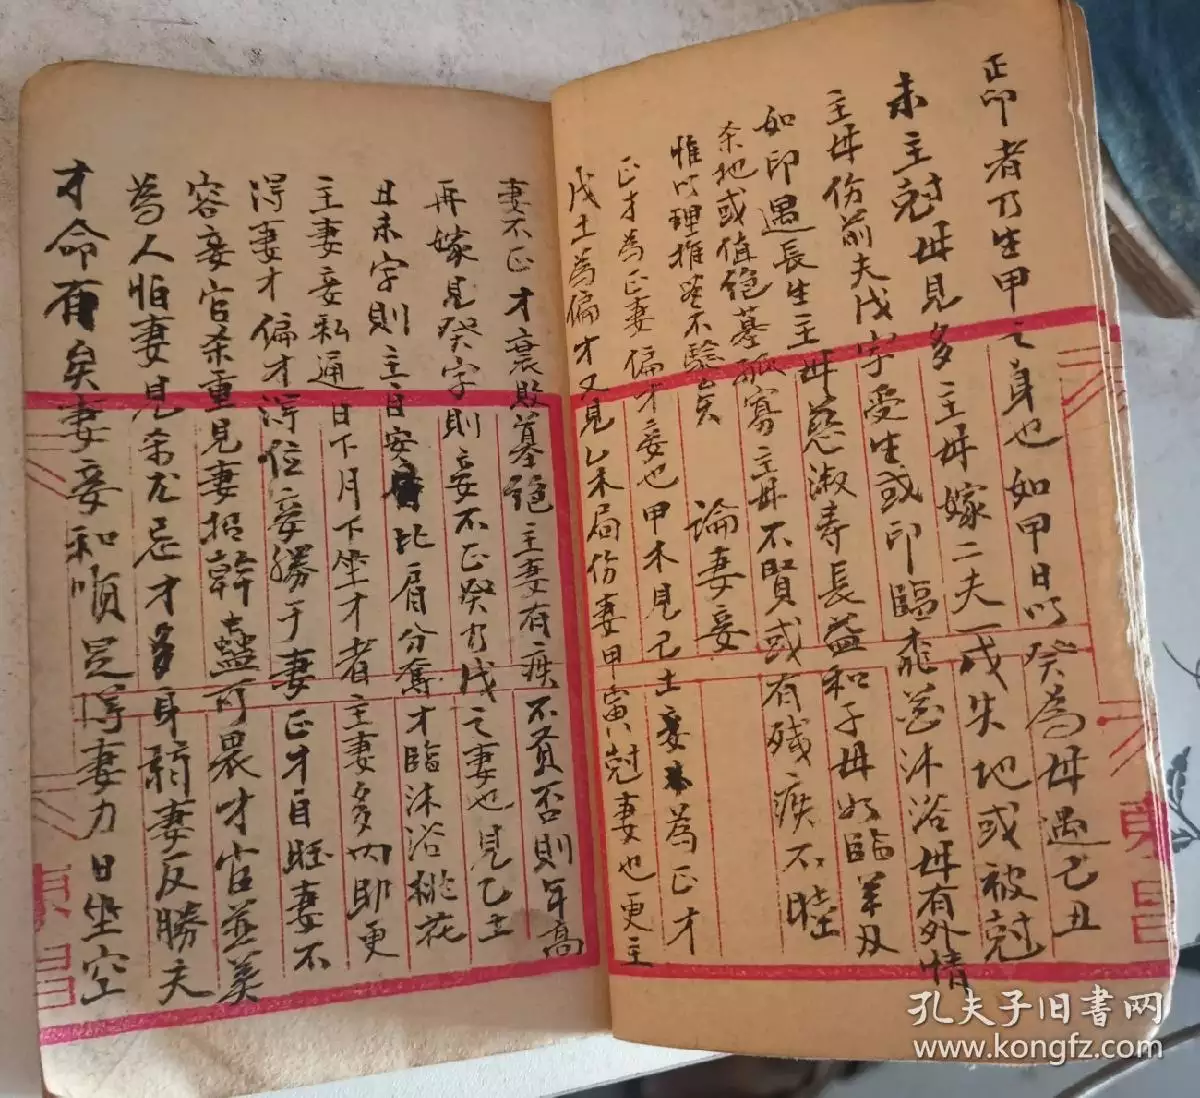 正印者乃生甲之身也如甲日以癸為母遇己丑
未主尅母見多主母嫁二夫一或失地或被尅
主母伤前夫戊字受生或印臨桃花沐浴母有外情
如印遇長生主母慈淑寿長益和子母如臨羊刃
杀地或值绝墓孤寡主母不賢或有殘疾不睦
惟以理推笑不驗矣 論妻妾
正才為正妻偏才妾也甲木見己土妾為正才
戊土為偏才又見乙未局伤妻甲寅尅妻也更主
妻不正才衰敗墓絕主妻有疾不賢否則年高
再嫁見癸字則妾不正癸乃戊之妻也見乙丑
丑未字則主目安比肩分奪才臨沐浴桃花
主妻妾私通日下月下坐才者主妻多內助更
得妻才偏才得位妾勝于妻正才自旺妻不
容妾官杀重見妻招幹蠱可畏才官並美
為人怕妻見杀忌才多身弱妻反勝夫
才命有矣妻妾和順足得妻力日坐空
東昌
東昌
孔夫子旧书网
www.kongfz.com